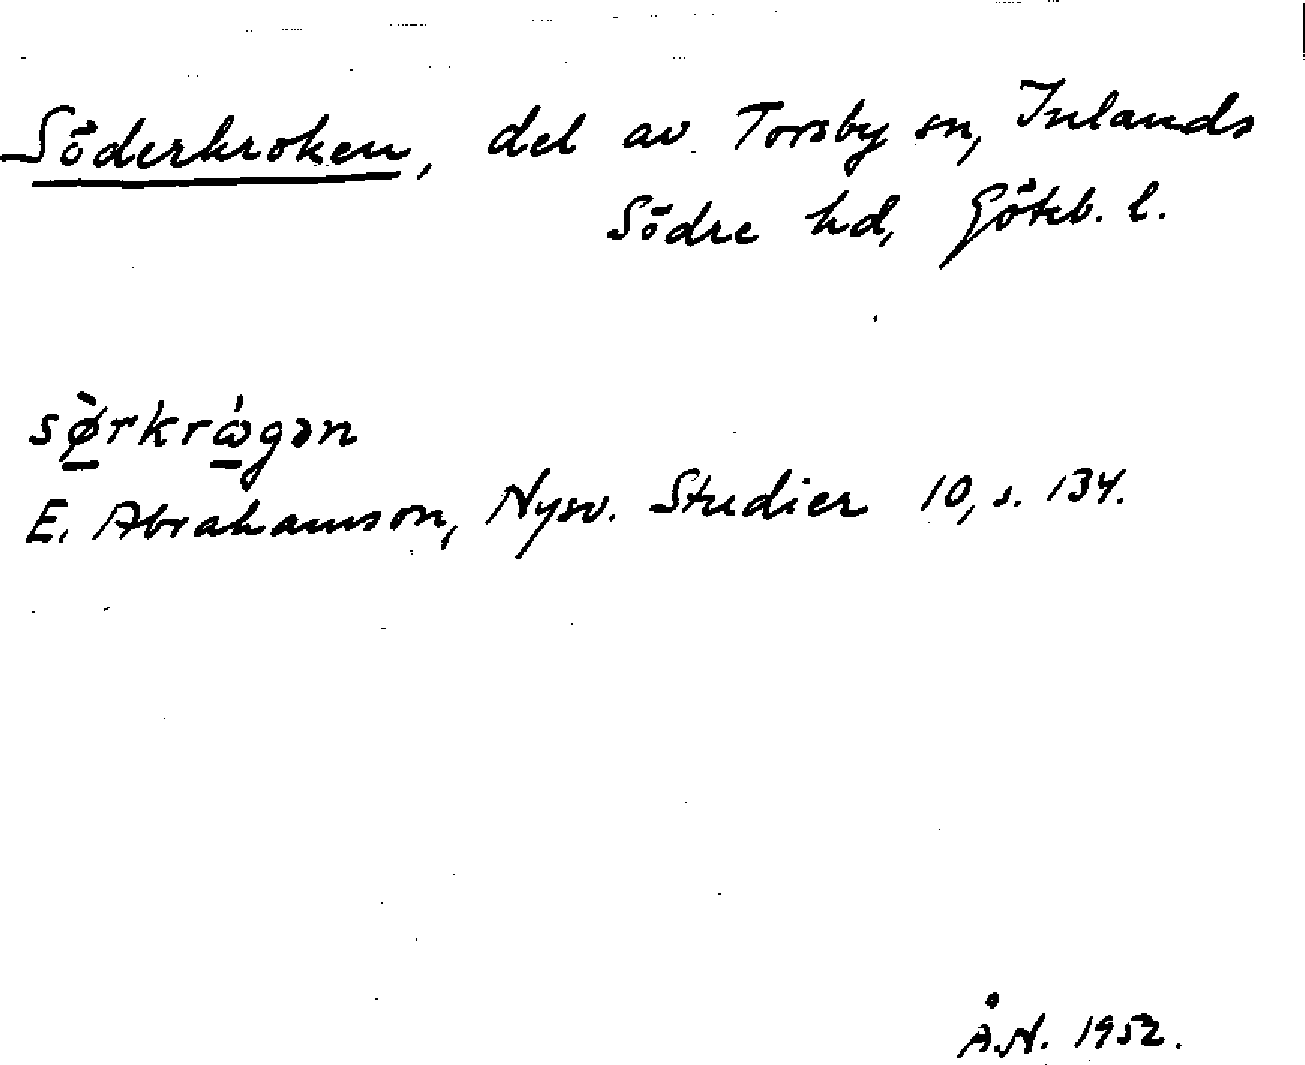 Söderkroken, del av Torsby sn, Inlands
Södre hd, Göteb. l.
sø̱̀rkrώ̱gən
E. Abrahamson, Nysv. Studier 10, s. 134.
Å.N. 1952.